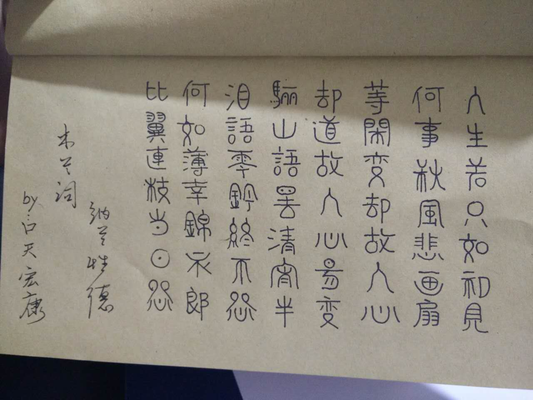 人生若只如初見
何事秋風悲画扇
等閑变却故人心
却道故人心易变
驪山語罷清宵半
泪語零鈴終不怨
何如薄幸錦衣郎
比翼連枝当日怨
木兰词
納兰性德
by